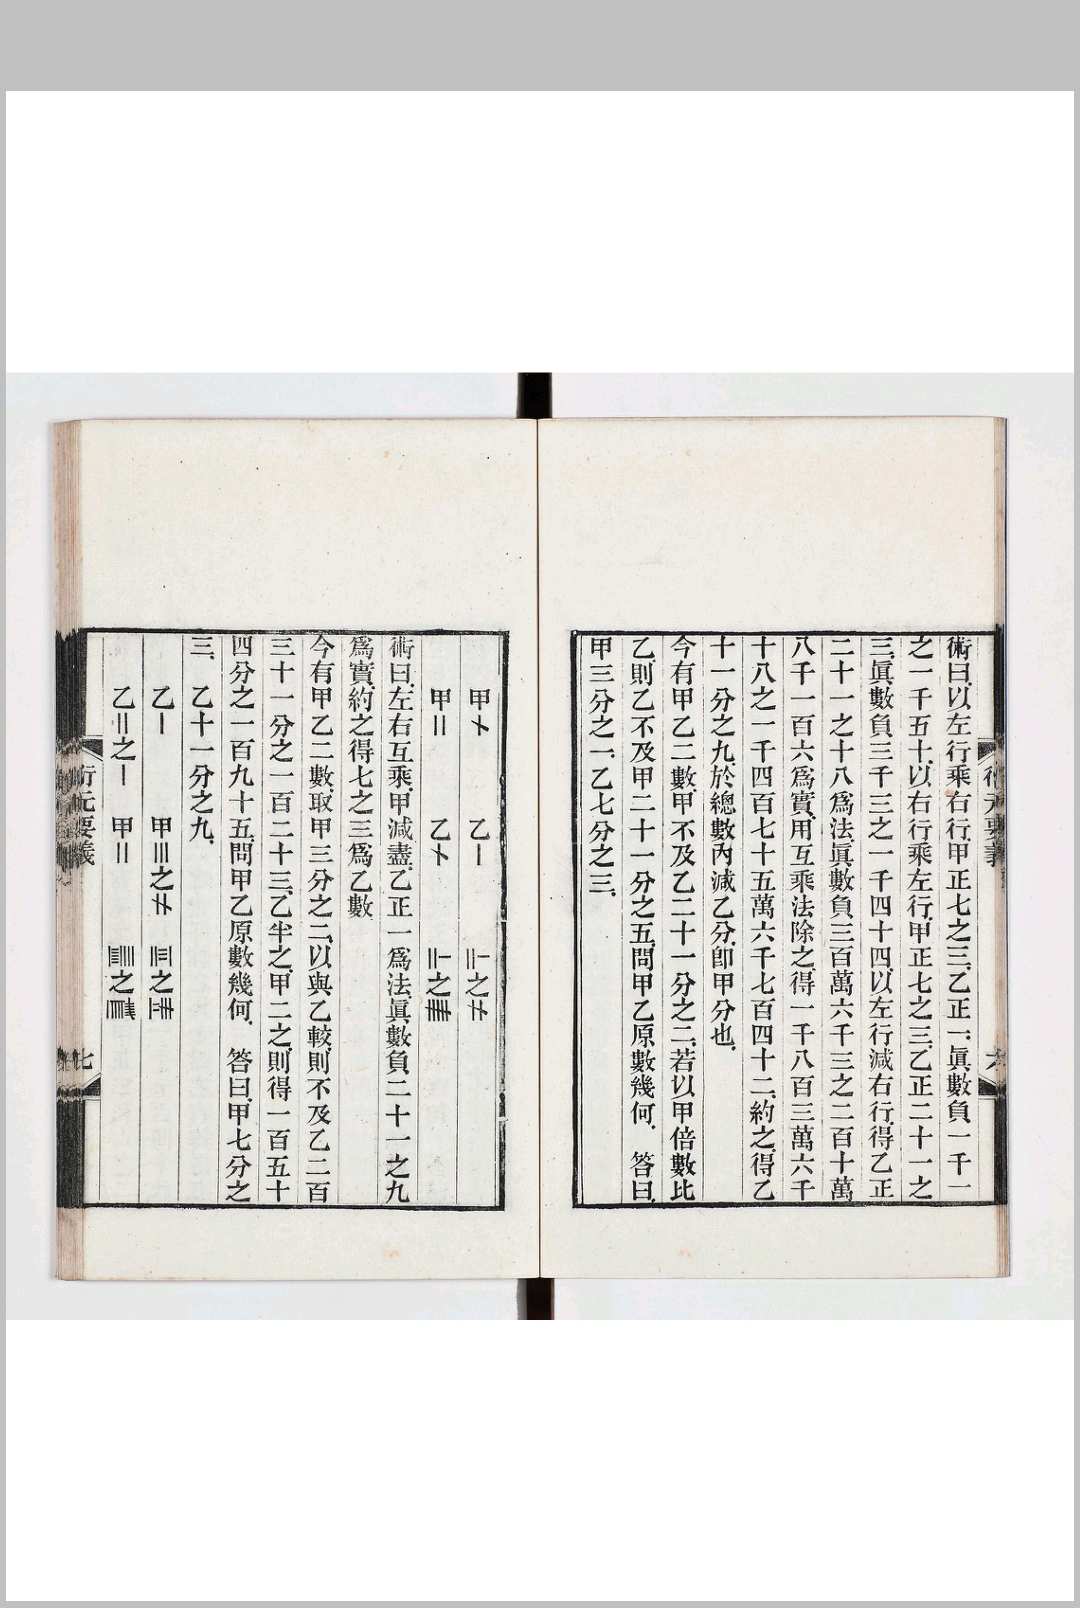 術曰.以左行乘右行.甲正七之三.乙正一.眞數負一千一
之一千五十.以右行乘左行.甲正七之三.乙正二十一之
三.眞數負三千三之一千四十四.以左行減右行.得乙正
二十一之十八爲法.眞數負三百萬六千三之二百十萬
八千一百六爲實.用互乘法除之.得一千八百三萬六千
十八之一千四百七十五萬六千七百四十二.約之.得乙
十一分之九.於總數內減乙分.卽甲分也.
今有甲乙二數.甲不及乙二十一分之二.若以甲倍數比
乙.則乙不及甲二十一分之五.問甲乙原數幾何.　答曰.
甲三分之一.乙七分之三.
甲　乙〡　之
甲〢　乙　之
術曰.左右互乘.甲減盡.乙正一爲法.眞數負二十一之九
爲實.約之得七之三爲乙數.
今有甲乙二數.取甲三分之二.以與乙較.則不及乙二百
三十一分之一百二十三.乙半之.甲二之.則得一百五十
四分之一百九十五.問甲乙原數幾何.　答曰.甲七分之
三.　乙十一分之九.
乙〡　甲〣之　之
乙〢之〡　甲〢　之
衍元要義　七